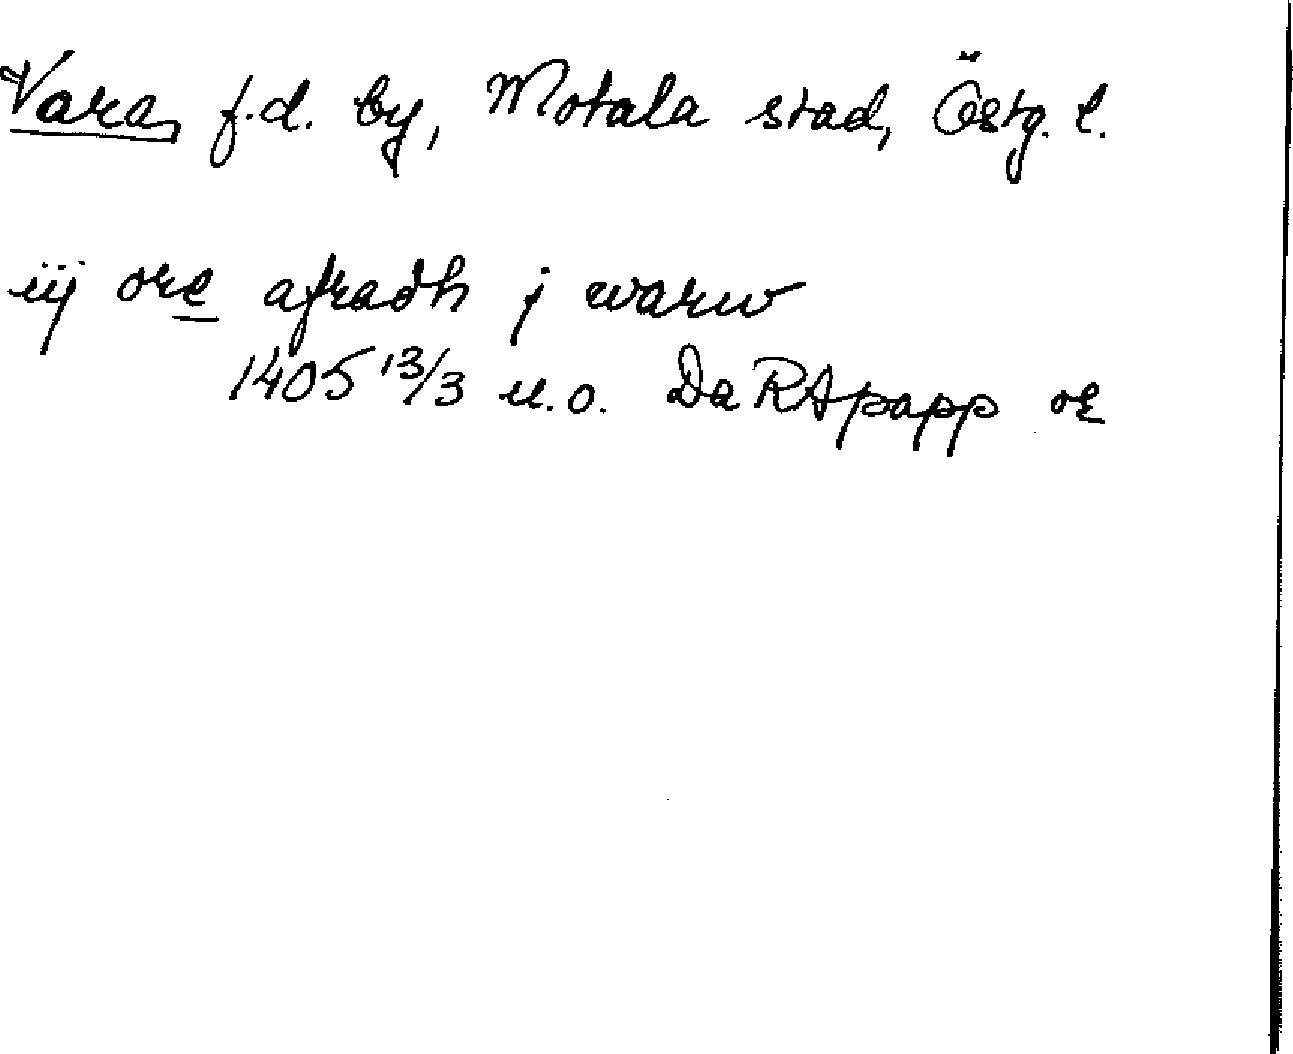 Vara, f.d. by, Motala stad, Östg. l.
iij ore afradh j warw
1405 13/3 u.o. Da RApapp or